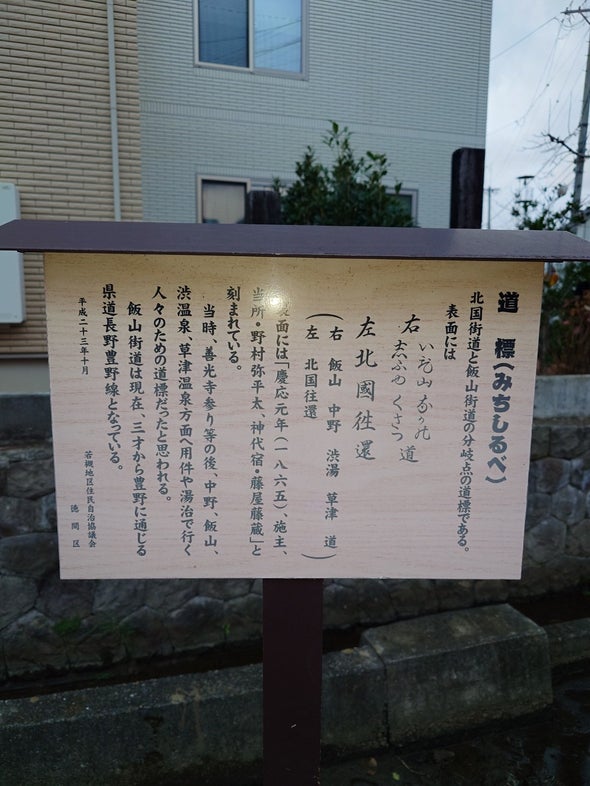 道 標(みちしるべ)
北国街道と飯山街道の分岐点の道標である。
表面には
右 いゐ山 なか乃 道
志ふゆ くさつ
左 北國徃還
(右 飯山 中野 渋湯 草津 道)
(左 北国往還)
裏面には「慶応元年(一八六五)、施主、
当所・野村弥平太、神代宿・藤屋藤蔵」と
刻まれている。
当時、善光寺参り等の後、中野、飯山、
渋温泉、草津温泉方面へ用件や湯治で行く
人々のための道標だったと思われる。
飯山街道は現在、三才から豊野に通じる
県道長野豊野線となっている。
平成二十三年十月
若槻地区住民自治協議会
徳間区